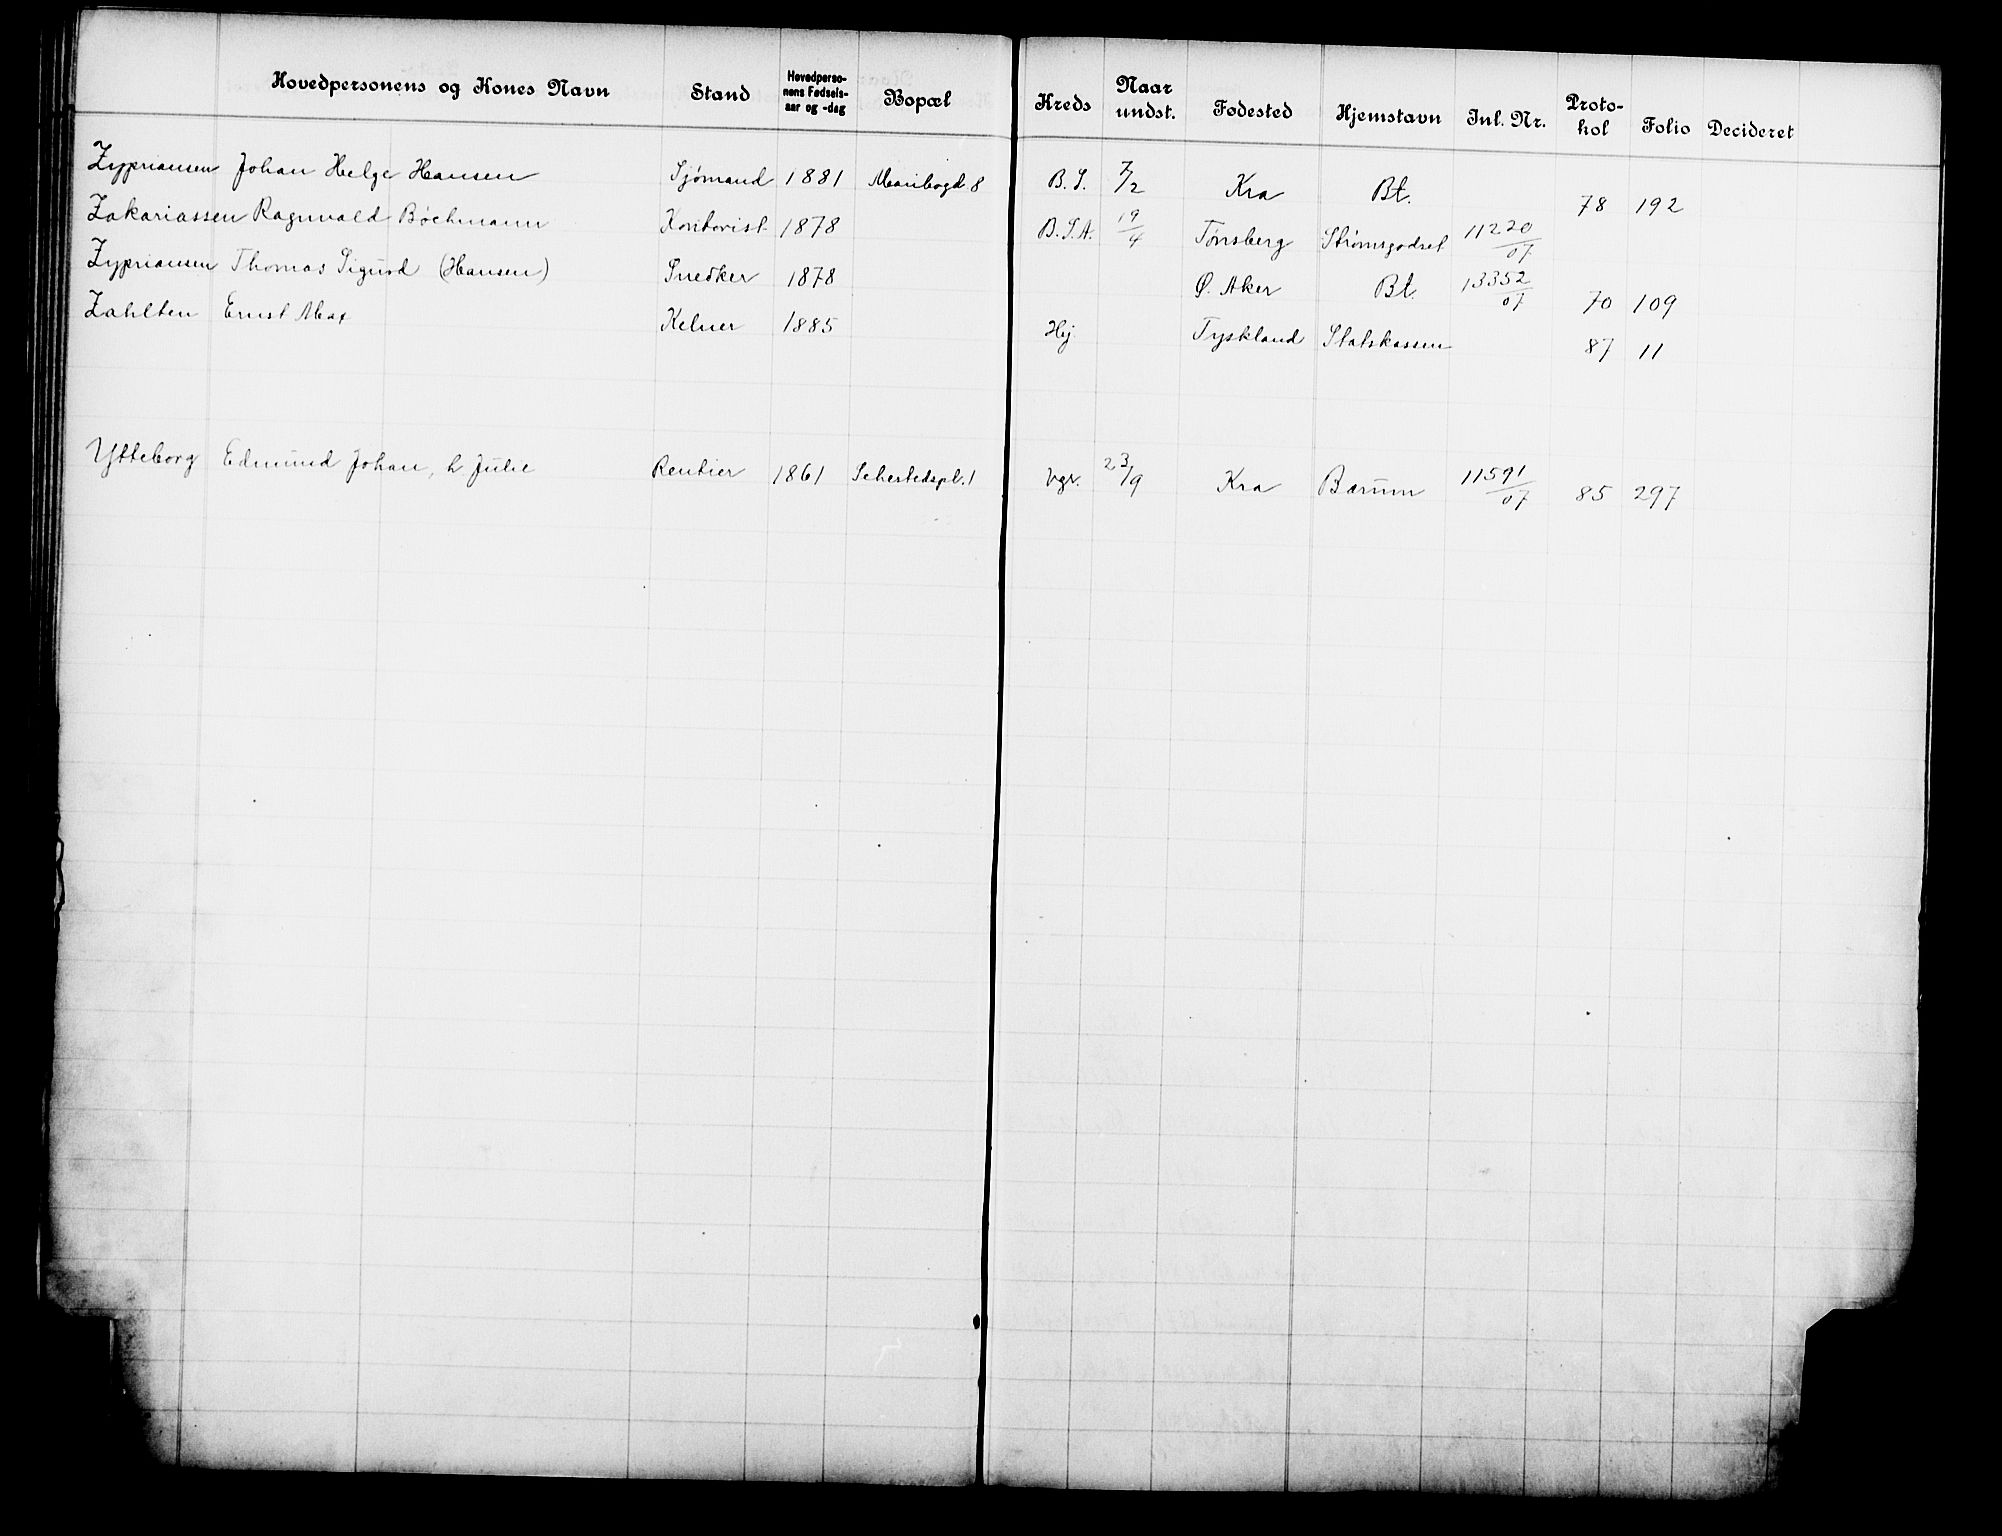 Hovedpersonens og Kones Navn Stand Hovedpersonens Fødselsaar og -dag Bopæl Kreds Naar undst. Fødested Hjemstavn Inl. Nr. Protokol Folio Decideret
Zypriansen Johan Helge Hansen Sjømand 1881 Maribogd 8 B.S. 7/2 Kra Bt. 78 192
Zakariassen Ragnvald Bøchmann Kontorist 1878 B.S.A. 19/4 Tønsberg Strømsgodset 11220/07
Zypriansen Thomas Sigurd (Hansen) Snedker 1878 Ø. Aker Bt. 13352/07 70 109
Zahlten Ernst Max Kelner 1885 Hj. Tyskland Statskassen 87 11
Ytteborg Edmund Johan, h. Julie Rentier 1861 Sehestedspl. 1 Vgr. 23/9 Kra Bærum 11591/07 85 297